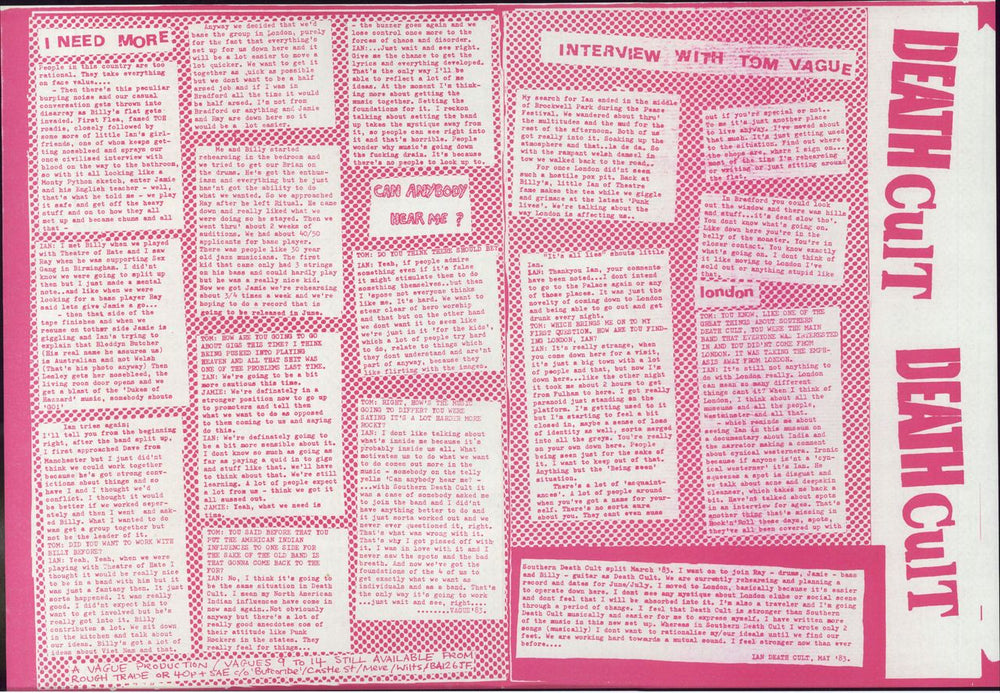 I NEED MORE
People in this country are too
rational. They take everything
on face value....
- Then there's this peculiar
burping noise and our casual
conversation gets thrown into
disarray as Billy's flat gets
invaded. First Flea, famed TOH
roadie, closely followed by
some more of little Ian's girl-
friends, one of whom keeps get-
ting nosebleed and sprays our
once civilised interview with
blood on the way to the bathroom,
so with it all looking like a
Monty Python sketch, enter Jamie
and his English teacher - well,
that's what he told me - we play
it safe and get off the heavy
stuff and on to how they all
met up and became chums and all
that -
IAN: I met Billy when we played
with Theatre of Hate and I saw
Ray when he was supporting Sex
Gang in Birmingham. I did'nt
know we were going to split up
then but I just made a mental
note..and like when we were
looking for a bass player Ray
said lets give Jamie a go...
- then that side of the
tape finishes and when we
resume on tother side Jamie is
giggling and Ian's trying to
explain that Bloddyn Butcher
(His real name he assures us)
is Australian and not Welsh
(That's his photo anyway) Then
Lesley gets her nosebleed, the
living room door opens and we
get a blast of the 'Dukes of
Hazzard' music, somebody shouts
'GO!'
Ian tries again -
I'll tell you from the beginning
right, after the band split up,
I first approached Dave from
Manchester but I just did'nt
think we could work together
because he's got strong conv-
ictions about things and so
have I and I thought we'd
conflict. I thought it would
be better if we worked separ-
ately and then I went and ask-
ed Billy. What I wanted to do
was get a group together but
not be the leader of it.
TOM: DID YOU WANT TO WORK WITH
BILLY BEFORE?
IAN: Yeah, Yeah, when we were
playing with Theatre of Hate I
thought it would be really nice
to be in a band with him but it
was just a fantasy then. It just
sorta happened. It was really
good. I did'nt expect him to
want to get involved but he's
really got into it. Billy
contributes a lot. We sit down
in the kitchen and talk about
our ideas. Billy's got a lot of
ideas about Viet Nam and that.
Anyway we decided that we'd
base the group in London, purely
for the fact that everything's
set up for us down here and it
will be a lot easier to move a
lot quicker. We want to get it
together as quick as possible
but we dont want to be a half
arsed job and if I was in
Bradford all the time it would
be half arsed. I'm not from
Bradford or anything and Jamie
and Ray are down here so it
would be a lot easier.
Me and Billy started
rehearsing in the bedroom and
we tried to get our Brian on
the drums. He's got the enthus-
iasm and everything but he just
has'nt got the ability to do
what we wanted. So we approached
Ray after he left Ritual. He came
down and really liked what we
were doing so he stayed. Then we
went thru' about 2 weeks of
auditions. We had about 40/50
applicants for bass player.
There was people like 30 year
old jazz musicians. The first
kid that came only had 3 strings
on his bass and could hardly play
but he was a really nice kid.
Now we got Jamie we're rehearsing
about 3/4 times a week and we're
hoping to do a record that is
going to be released in June.
TOM: HOW ARE YOU GOING TO GO
ABOUT GIGS THIS TIME? I THINK
BEING PUSHED INTO PLAYING
HEAVEN AND ALL THAT SHIT WAS
ONE OF THE PROBLEMS LAST TIME.
IAN: We're going to be a bit
more cautious this time.
JAMIE: We're definately in a
stronger position now to go up
to promoters and tell them
what we want to do as opposed
to them coming to us and saying
do this.
IAN: We're definately going to
be a bit more sensible about it.
I dont know so much as going as
far as paying a quid in to gigs
and stuff like that. we'll have
to think about that. We're still
learning. A lot of people expect
a lot from us - think we got it
all sussed out.
JAMIE: Yeah, what we need is
time.
TOM: YOU SAID BEFORE THAT YOU
PUT THE AMERICAN INDIAN
INFLUENCES TO ONE SIDE FOR
THE SAKE OF THE OLD BAND IS
THAT GONNA COME BACK TO THE
FOR?
IAN: No, I think it's going to
be the same situation in Death
Cult. I mean my North American
Indian influences have come in
now and again..Not obviously
anyway but there's a lot of
really good anecdotes cos of
their attitude like Punk
Rockers in the states. They
really feel for things...
- the buzzer goes again and we
lose control once more to the
forces of chaos and disorder.
IAN:...Just wait and see right.
Give us the chance to get the
lyrics and everything developed.
That's the only way I'll be
able to reflect a lot of me
ideas. At the moment I'm think-
ing more about getting the
music together. Setting the
foundations for it. I reckon
talking about setting the band
up takes the mystique away from
it, so people can see right into
it and that's horrible. People
wonder why music's going down
the fucking drain. It's because
there's no people to look up to.
CAN ANYBODY
HEAR ME ?
TOM: DO YOU THINK THERE SHOULD BE?
IAN: Yeah, if people admire
something even if it's false
it might stimulate them to do
something themselves..but then
I 'spose not everyone thinks
like me. It's hard. We want to
steer clear of hero worship
and that but on the other hand
we dont want it to seem like
we're just in it 'for the kids',
which a lot of people try hard
to do, relate to things which
they dont understand and are'nt
part of anyway, because they
like flirting with the images.
TOM: RIGHT, HOW'S THE MUSIC
GOING TO DIFFER? YOU WERE
SAYING IT'S A LOT HARDER MORE
ROCKY?
IAN: I dont like talking about
what's inside me because it's
probably inside us all. What
motivates us to do what we want
to do comes out more in the
music - somebody on the telly
yells 'Can anybody hear me? -
...with Southern Death Cult it
was a case of somebody asked me
to join the band and I did'nt
have anything better to do and
it just sorta worked out and we
never ever questioned it, right.
That's what was wrong with it.
That's why I got pissed off with
it, I was in love with it and I
never saw the spots and the bad
breath. And now we've got the
foundations of the 4 of us to
get exactly what we want as
individuals and as a band. That's
the only way it's going to work
...just wait and see, right....
........VAGUE'83.
A VAGUE PRODUCTION / VAGUES 9 TO 14 STILL AVAILABLE FROM
ROUGH TRADE OR 40p + SAE c/o 'Butcombe'/Castle St/Mere/Wilts/BA12 6JF.
INTERVIEW WITH TOM VAGUE
My search for Ian ended in the middle
of Brockwell Park during the Peace
Festival. We wandered about thru'
the multitudes and the mud for the
rest of the afternoon. Both of us
got really into it. Soaking up the
atmosphere and that..la de da. So
with the rampant welsh damsel in
tow we walked back to the road..
For once London did'nt seem
such a hostile pox pit. Back at
Billy's, little Ian of Theatre
fame makes the tea while we giggle
and grimace at the latest 'Punk
lives'. We're talking about the
way London is affecting us..
"It's all lies" shouts little
Ian.
IAN: Thankyou Ian, your comments
have been noted...I dont intend
to go to the Palace again or any
of those places. It was just the
novelty of coming down to London
and being able to go out and get
drunk every night.
TOM: WHICH BRINGS ME ON TO MY
FIRST QUESTION. HOW ARE YOU FIND-
ING LONDON, IAN?
IAN: It's really strange, when
you come down here for a visit,
it's just a big town with a lot
of people and that, but now I'm
down here...like the other night
it took me about 2 hours to get
from Fulham to here. I got really
paranoid just standing on the
platform. I'm getting used to it
but I'm starting to feel a bit
closed in, maybe a sense of loss
of identity as well, sorta merged
into all the greys. You're really
on your own down here. People
being seen just for the sake of
it, I want to keep out of that.
Anything but the 'Being seen'
situation.
There's a lot of 'acquaint-
ances'. A lot of people around
when you've got a name for your-
self. There's no sorta aura
about you. They cant even suss
out if you're special or not..
so it's just another place
to live anyway. I've moved about
that much. It's just getting used
to the situation. Find out where
the shops are, where I sign on...
most of the time I'm rehearsing
or writing or just sitting around
the flat.
In Bradford you could look
out the window and there was hills
and stuff...it's dead slow tho'.
You dont know what's going on.
Like down here you're in the
belly of the monster. You're in
closer contact. You know exactly
what's going on. I dont think of
it like moving to London I've
sold out or anything stupid like
that.
london
TOM: YOU KNOW, LIKE ONE OF THE
GREAT THINGS ABOUT SOUTHERN
DEATH CULT, YOU WERE THE MAIN
BAND THAT EVERYONE WAS INTERESTED
IN AND YOU DID'NT COME FROM
LONDON. IT WAS TAKING THE EMPH-
ASIS AWAY FROM LONDON.
IAN: It's still not anything to
do with London really. London
can mean so many different
things cant it? When I think of
London, I think about all the
museums and all the people,
Westminster and all that.
- which reminds me about
seeing Ian in this museum on
a documentary about India and
the narrator making a comment
about cynical westerners. Ironic
because if anyone is'nt a 'cyn-
ical westerner' it's Ian. He
squeezes a spot in disgust and
we talk about acne and deepskin
cleanser, which takes me back a
bit. Have'nt talked about spots
in an Interview for ages. That's
another thing that's missing in
Rock'n'Roll these days, spots,
they've all been covered up with
Southern Death Cult split March '83. I want on to join Ray - drums, Jamie - bass
and Billy - guitar as Death Cult. We are currently rehearsing and planning a
record and dates for June/July. I moved to London, basically because it's easier
to operate down here. I dont see any mystique about London clubs or social scene
and dont feel that I will be absorbed into it. I'm also a traveler and I'm going
through a period of change. I feel that Death Cult is stronger than Southern
Death Cult musically and easier for me to express myself, I have written more
of the music in this new set up. Whereas in Southern Death Cult I wrote only 2
songs (musically) I dont want to rationalise my/our ideals until we find our
feet. We are working hard towards a mutual sound. I feel stronger now than ever
before....
IAN DEATH CULT, MAY '83.
DEATH CulT DEATH CulT